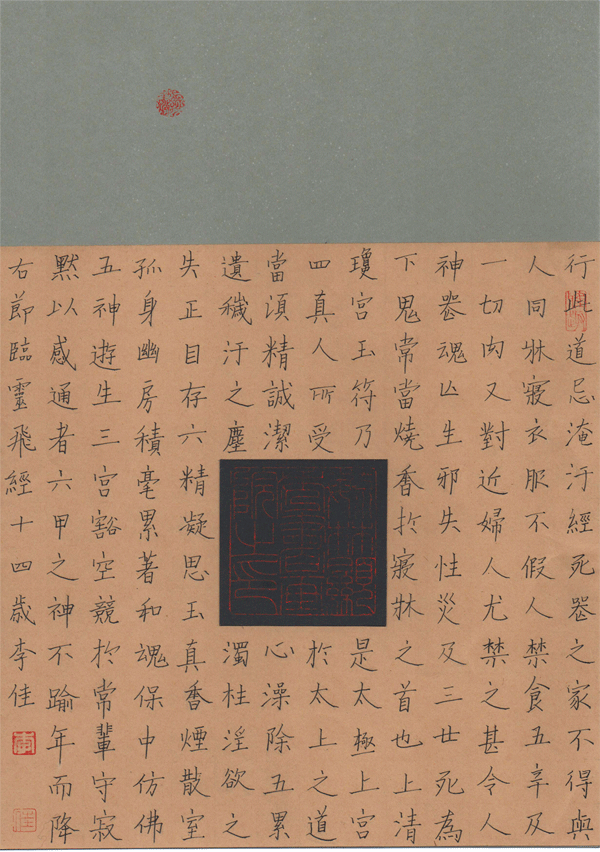 行此道忌淹汙經死喪之家不得與
人同牀寢衣服不假人禁食五辛及
一切肉又對近婦人尤禁之甚令人
神喪魂亡生邪失性災及三世死為
下鬼常當燒香扵寢牀之首也上清
瓊宮玉符乃是太極上宮
四真人所受於太上之道
當須精誠潔心澡除五累
遺穢汙之塵濁杜淫欲之
失正目存六精凝思玉真香煙散室
孤身幽房積毫累著和魂保中仿佛
五神遊生三宮豁空競於常輩守寂
默以感通者六甲之神不踰年而降
右節臨靈飛經十四歲李佳
李
佳